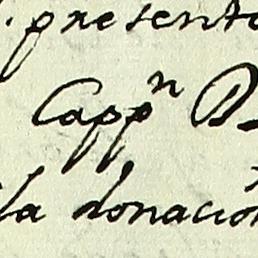 presento
Cappn D
la donacion